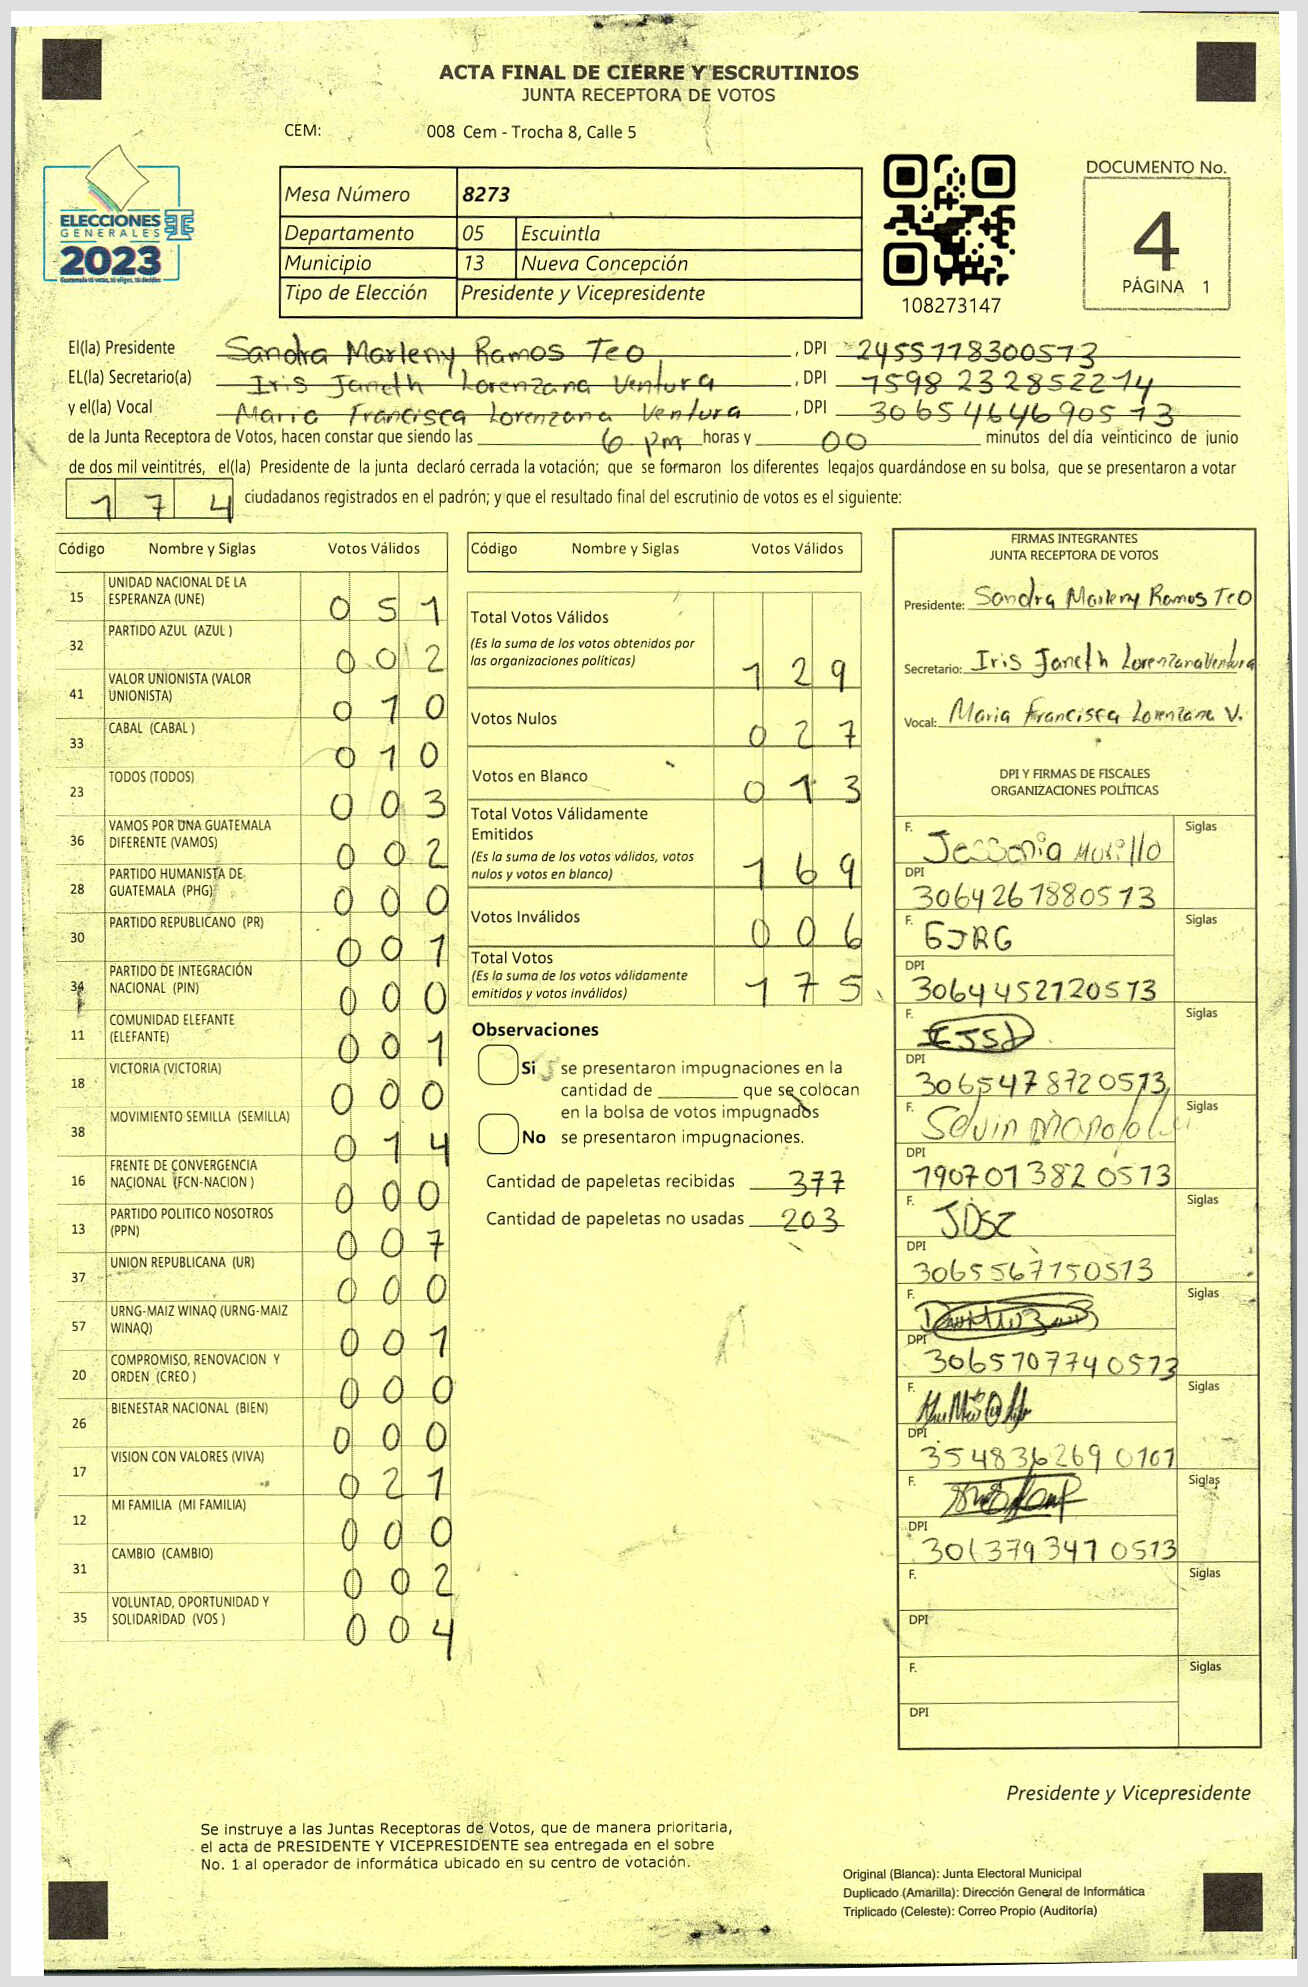 ACTA FINAL DE CIERRE Y ESCRUTINIOS
JUNTA RECEPTORA DE VOTOS
CEM: 008 Cem - Trocha 8, Calle 5
ELECCIONES
GENERALES
2023
Mesa Número 8273
Departamento 05 Escuintla
Municipio 13 Nueva Concepción
Tipo de Elección Presidente y Vicepresidente
108273147
DOCUMENTO No.
4
PÁGINA 1
El(la) Presidente Sandra Marleny Ramos Teo, DPI 2455118300513
EL(la) Secretario(a) Iris Janeth Lorenzana Ventura, DPI 1598232852214
y el(la) Vocal Maria Francisca Lorenzana Ventura, DPI 3065464690513
de la Junta Receptora de Votos, hacen constar que siendo las 6 pm horas y 00 minutos del día veinticinco de junio
de dos mil veintitrés, el(la) Presidente de la junta declaró cerrada la votación; que se formaron los diferentes legajos guardándose en su bolsa, que se presentaron a votar
174 ciudadanos registrados en el padrón; y que el resultado final del escrutinio de votos es el siguiente:
Código Nombre y Siglas Votos Válidos
15 UNIDAD NACIONAL DE LA ESPERANZA (UNE) 051
32 PARTIDO AZUL (AZUL ) 002
41 VALOR UNIONISTA (VALOR UNIONISTA) 010
33 CABAL (CABAL ) 010
23 TODOS (TODOS) 003
36 VAMOS POR UNA GUATEMALA DIFERENTE (VAMOS) 002
28 PARTIDO HUMANISTA DE GUATEMALA (PHG) 000
30 PARTIDO REPUBLICANO (PR) 001
34 PARTIDO DE INTEGRACIÓN NACIONAL (PIN) 000
11 COMUNIDAD ELEFANTE (ELEFANTE) 001
18 VICTORIA (VICTORIA) 000
38 MOVIMIENTO SEMILLA (SEMILLA) 014
16 FRENTE DE CONVERGENCIA NACIONAL (FCN-NACION ) 000
13 PARTIDO POLITICO NOSOTROS (PPN) 007
37 UNION REPUBLICANA (UR) 000
57 URNG-MAIZ WINAQ (URNG-MAIZ WINAQ) 001
20 COMPROMISO, RENOVACION Y ORDEN (CREO ) 000
26 BIENESTAR NACIONAL (BIEN) 000
17 VISION CON VALORES (VIVA) 021
12 MI FAMILIA (MI FAMILIA) 000
31 CAMBIO (CAMBIO) 002
35 VOLUNTAD, OPORTUNIDAD Y SOLIDARIDAD (VOS ) 004
Código Nombre y Siglas Votos Válidos
Total Votos Válidos
(Es la suma de los votos obtenidos por
las organizaciones políticas) 129
Votos Nulos 027
Votos en Blanco 013
Total Votos Válidamente
Emitidos
(Es la suma de los votos válidos, votos
nulos y votos en blanco) 169
Votos Inválidos 006
Total Votos
(Es la suma de los votos válidamente
emitidos y votos inválidos) 175
Observaciones
Si se presentaron impugnaciones en la
cantidad de ________ que se colocan
en la bolsa de votos impugnados
No se presentaron impugnaciones.
Cantidad de papeletas recibidas 377
Cantidad de papeletas no usadas 203
FIRMAS INTEGRANTES
JUNTA RECEPTORA DE VOTOS
Presidente: Sandra Marleny Ramos Teo
Secretario: Iris Janeth Lorenzana Ventura
Vocal: Maria Francisca Lorenzana V.
DPI Y FIRMAS DE FISCALES
ORGANIZACIONES POLÍTICAS
F. Jessenia Murillo Siglas
DPI 3064261880513
F. GJRG Siglas
DPI 3064452120513
F. Siglas
DPI 3065478720513
F. Selvin Siglas
DPI 1907013820513
F. JDSZ Siglas
DPI 3065567150513
F. Siglas
DPI 3065707740513
F. Siglas
DPI 3548362690101
F. Siglas
DPI
F. Siglas
DPI
F. Siglas
DPI
Presidente y Vicepresidente
Se instruye a las Juntas Receptoras de Votos, que de manera prioritaria,
el acta de PRESIDENTE Y VICEPRESIDENTE sea entregada en el sobre
No. 1 al operador de informática ubicado en su centro de votación.
Original (Blanca): Junta Electoral Municipal
Duplicado (Amarilla): Dirección General de Informática
Triplicado (Celeste): Correo Propio (Auditoría)